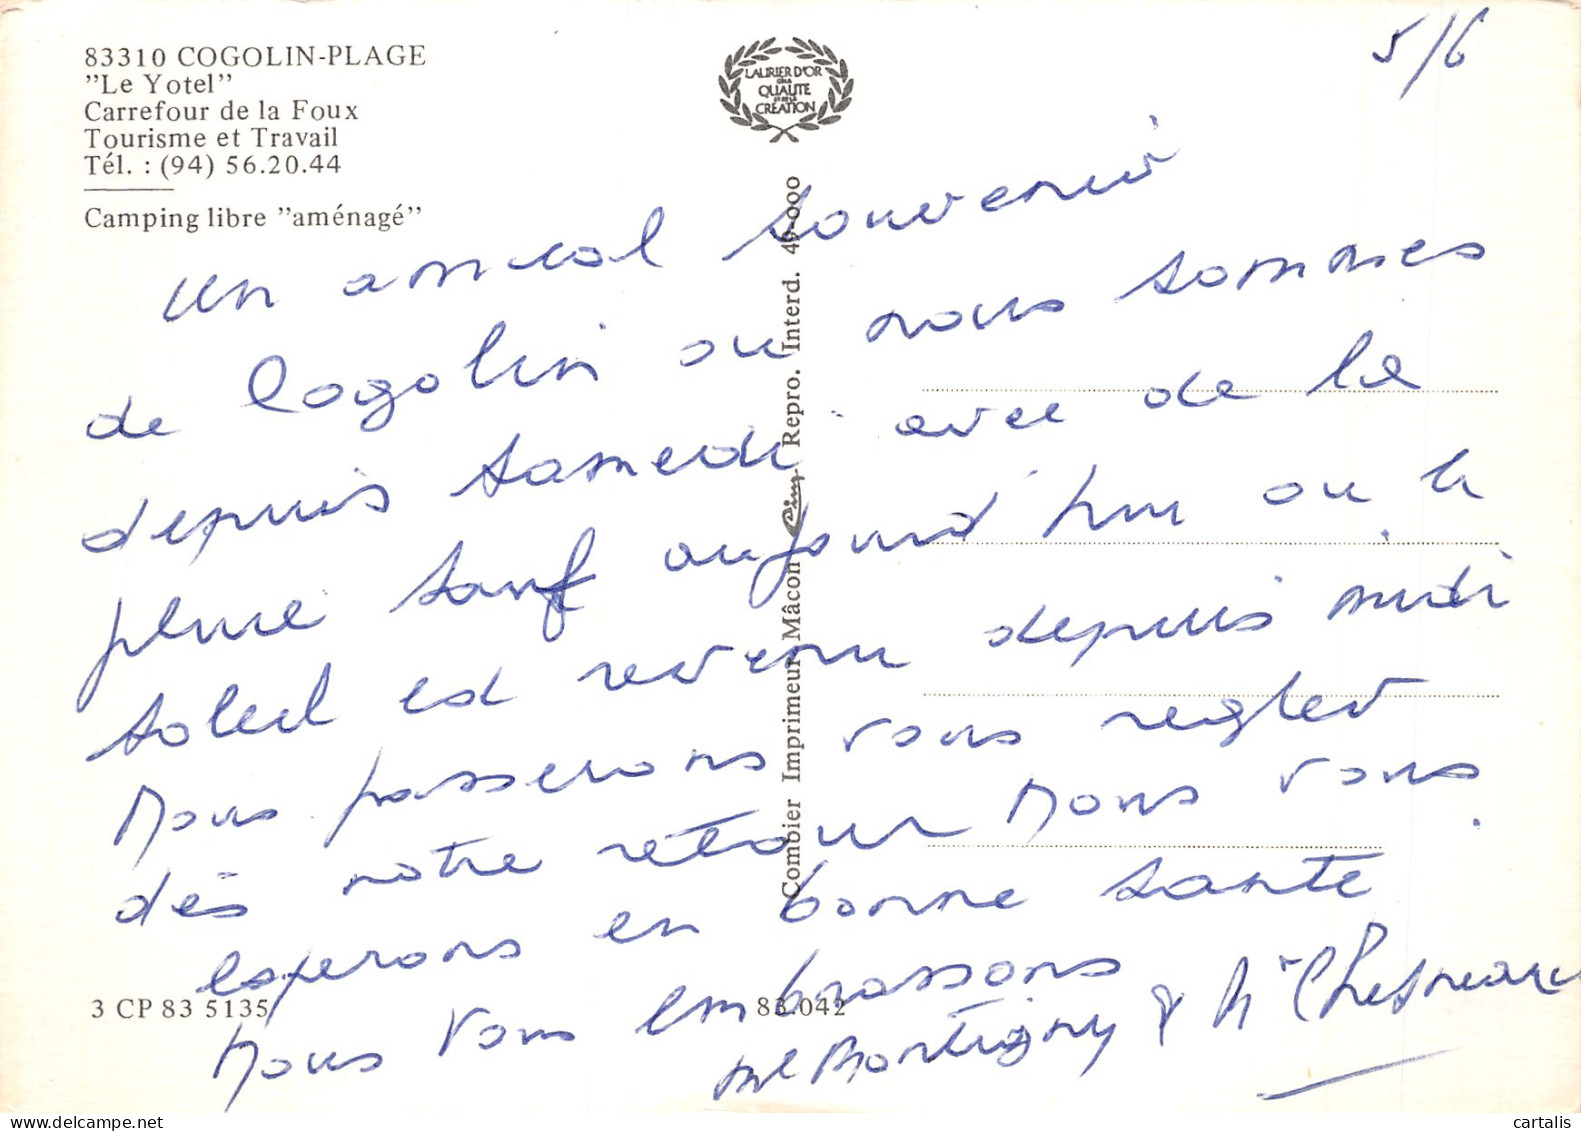 83310 COGOLIN-PLAGE
"Le Yotel"
Carrefour de la Foux
Tourisme et Travail
Tél. : (94) 56.20.44
Camping libre "aménagé"
LAURIER D'OR
DE LA
QUALITE
ET DE LA
CREATION
5/6
un amical souvenir
de Cogolin ou nous sommes
depuis samedi avec de la
pluie sauf aujourd'hui ou le
soleil est revenu depuis midi
Nous passerons vous regler
dès notre retour Nous vous
esperons en bonne sante
Nous vous embrassons
Mr Montigny & Mr
Combier Imprimeur Mâcon Cim Repro. Interd. 49-000
3 CP 83 5135
83.042
cartalis